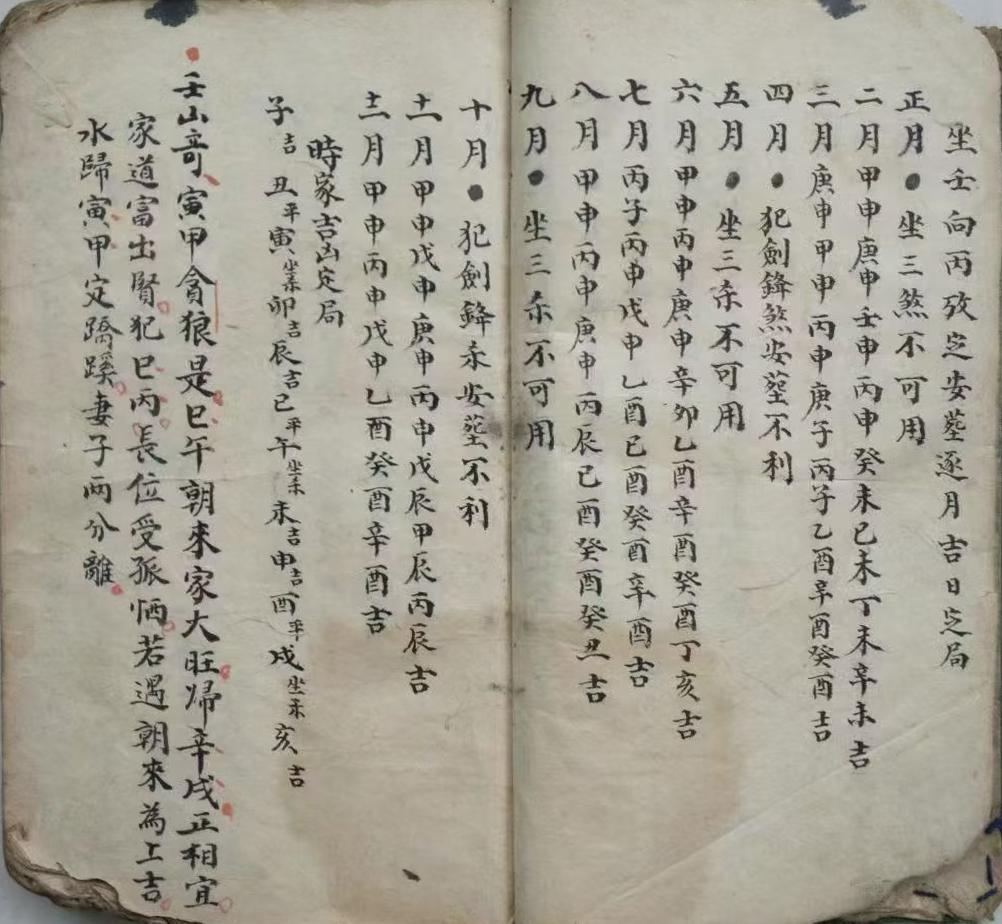 坐壬向丙攷定安塟逐月吉日定局
正月●坐三煞不可用
二月甲申庚申壬申丙申癸未己未丁未辛未吉
三月庚申甲申丙申庚子丙子乙酉辛酉癸酉吉
四月●犯劍鋒煞安塟不利
五月●坐三杀不可用
六月甲申丙申庚申辛卯乙酉辛酉癸酉丁亥吉
七月丙子丙申戊申乙酉己酉癸酉辛酉吉
八月甲申丙申庚申丙辰己酉癸酉癸丑吉
九月●坐三杀不可用
十月●犯劍鋒杀安塟不利
十一月甲申戊申庚申丙申戊辰甲辰丙辰吉
十二月甲申丙申戊申乙酉癸酉辛酉吉
時家吉凶定局
子吉丑平寅坐杀卯吉辰吉巳平午坐杀未吉申吉酉平戌坐杀亥吉
壬山竒寅甲貪狼是巳午朝來家大旺歸辛戌正相宜
家道富出賢犯巳丙長位受孤恓若遇朝來為上吉
水歸寅甲定蹺蹊妻子兩分離